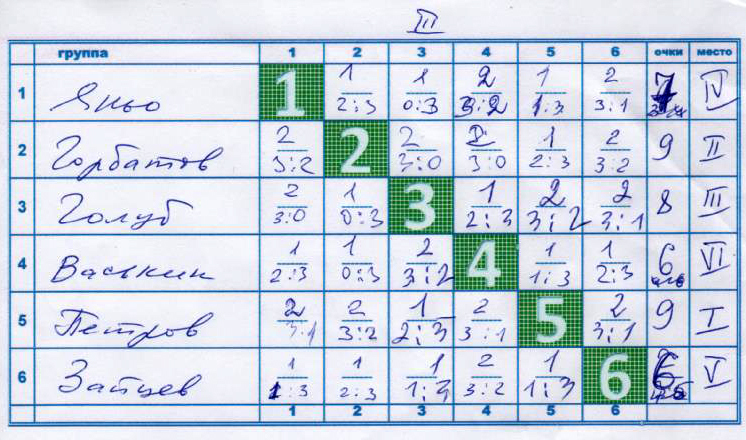 III
группа 1 2 3 4 5 6 очки место
1 Яньо 1 1 2:3 1 0:3 2 3:2 1 1:3 2 3:1 7 IV
2 Горбатов 2 3:2 2 2 3:0 2 3:0 1 2:3 2 3:2 9 II
3 Голуб 2 3:0 1 0:3 3 1 2:3 2 3:2 2 3:1 8 III
4 Васькин 1 2:3 1 0:3 2 3:2 4 1 1:3 1 2:3 6 VI
5 Петров 2 3:1 2 3:2 1 2:3 2 3:1 5 2 3:1 9 I
6 Зайцев 1 1:3 1 2:3 1 1:3 2 3:2 1 1:3 6 6 V
1 2 3 4 5 6